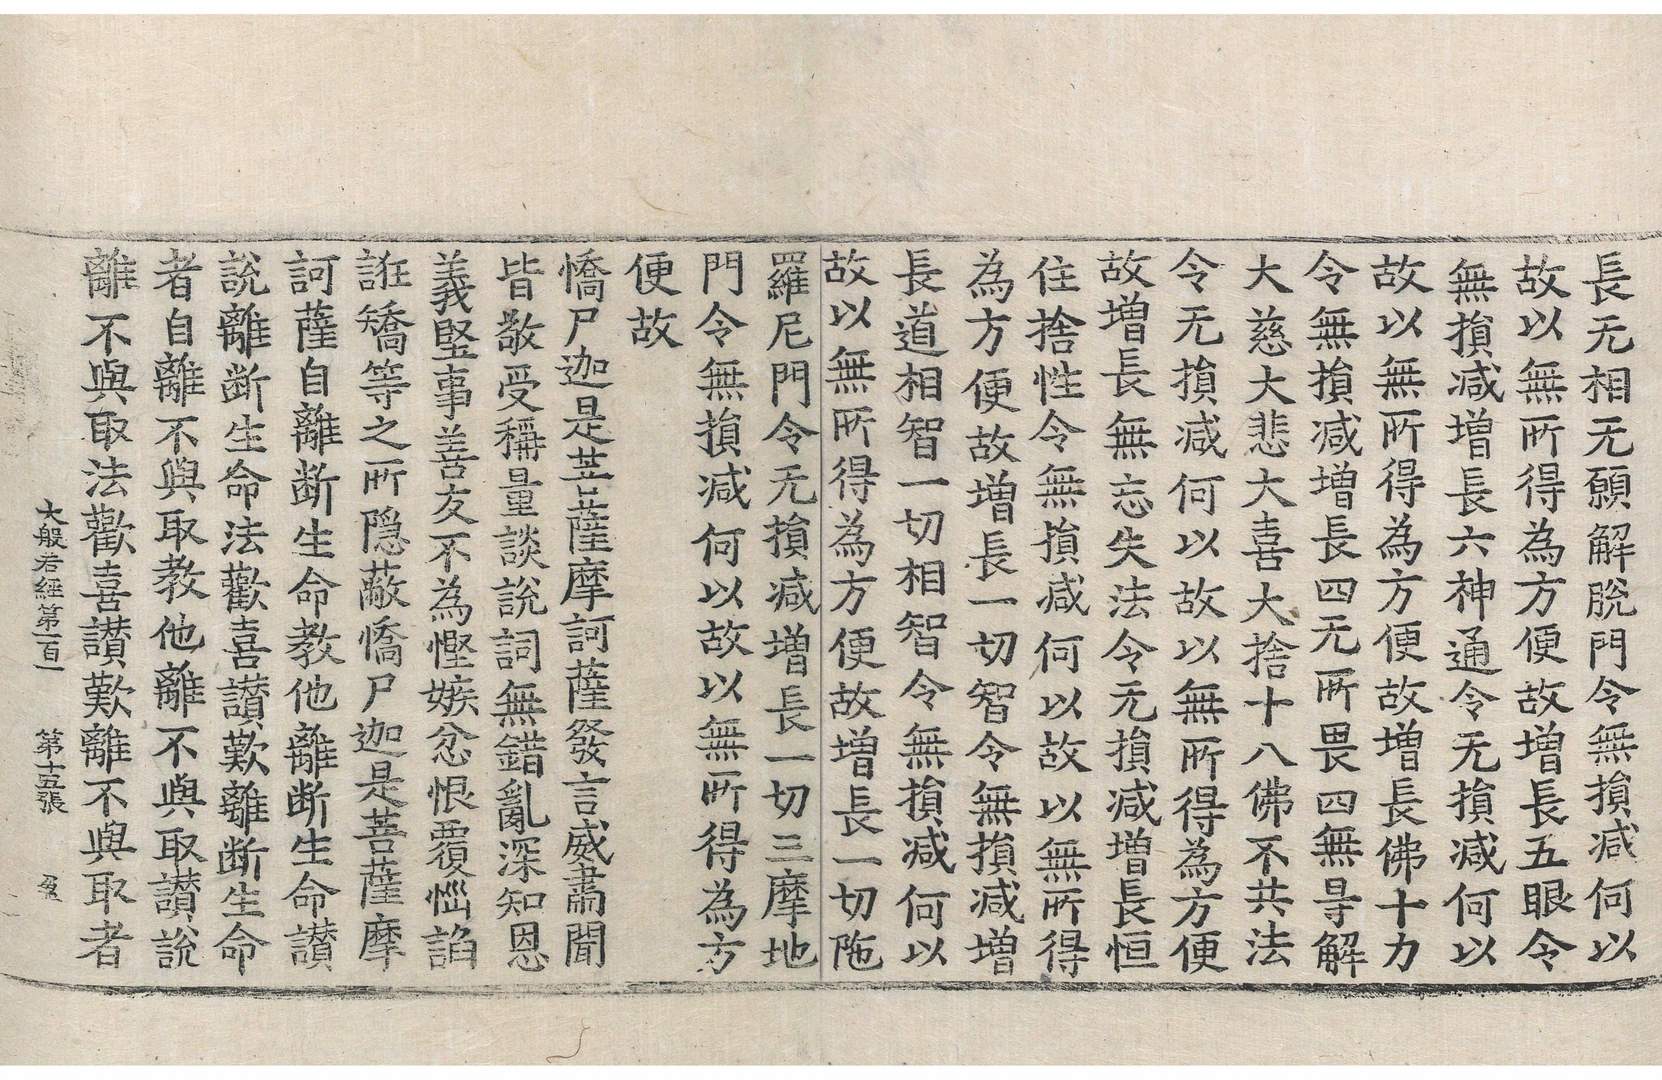 長无相无願解脫門令無損減何以
故以無所得為方便故增長五眼令
無損減增長六神通令无損減何以
故以無所得為方便故增長佛十力
令無損減增長四无所畏四無导解
大慈大悲大喜大捨十八佛不共法
令无損減何以故以無所得為方便
故增長無忘失法令无損減增長恒
住捨性令無損減何以故以無所得
為方便故增長一切智令無損減增
長道相智一切相智令無損減何以
故以無所得為方便故增長一切陁
羅尼門令无損減增長一切三摩地
門令無損減何以故以無所得為方
便故
憍尸迦是菩薩摩訶薩發言威肅聞
皆敬受稱量談說詞無錯亂深知恩
義堅事善友不為慳嫉忿恨覆惱諂
誑矯等之所隱蔽憍尸迦是菩薩摩
訶薩自離斷生命教他離斷生命讃
說離斷生命法歡喜讃歎離斷生命
者自離不與取教他離不與取讃說
離不與取法歡喜讃歎離不與取者
大般若經第一百一 第十五張 盈